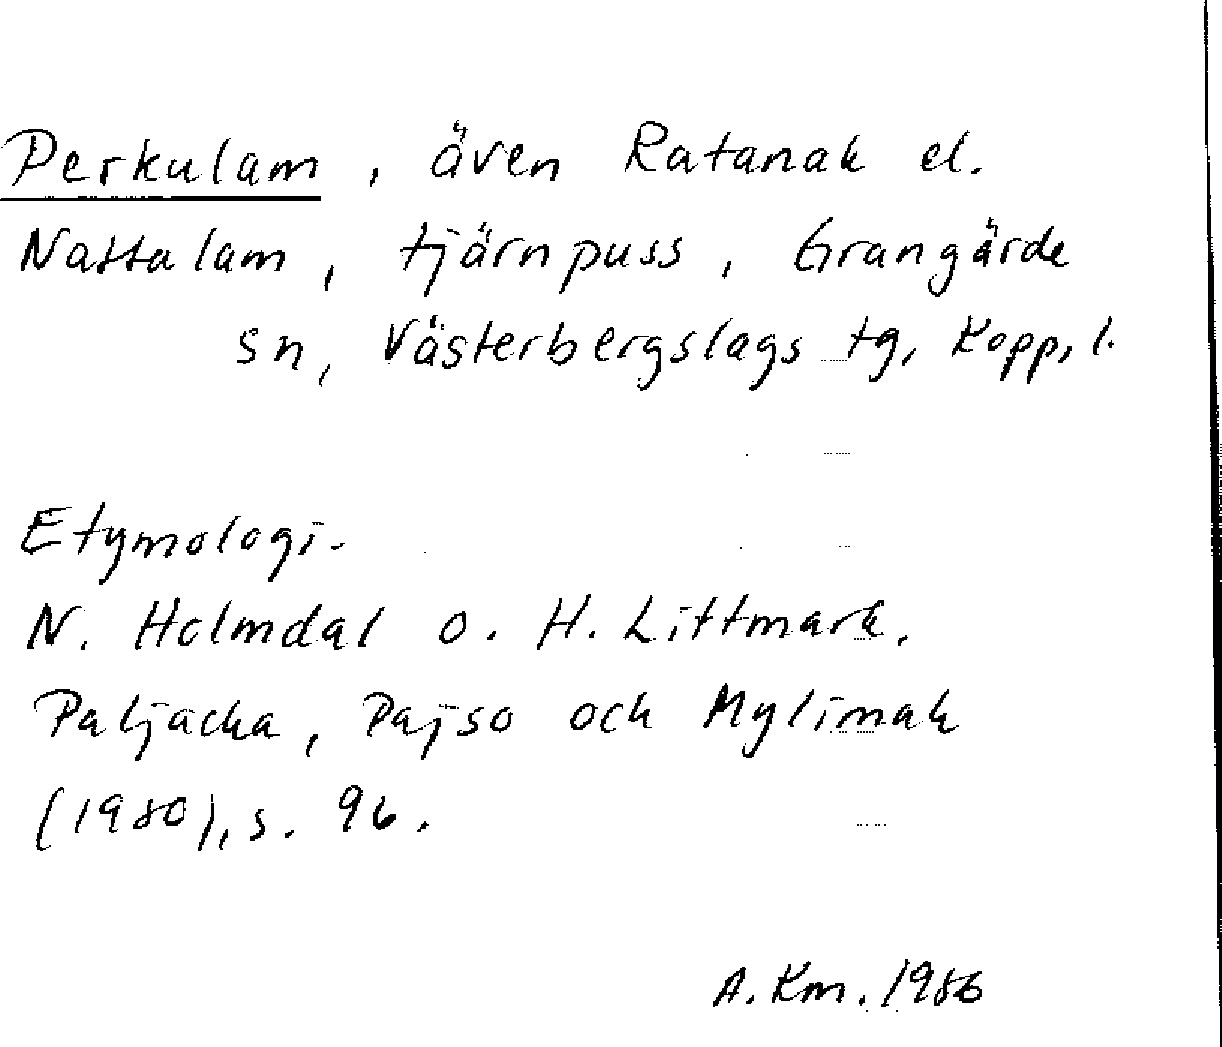 Perkulam, även Ratanak el.
Nattalam, tjärnpuss, Grangärde
sn, Västerbergslags tg, Kopp, l.
Etymologi.
N. Holmdal o. H. Littmark,
Paljacka, Pajso och Mylimak
(1980), s. 96.
A. Km. 1986